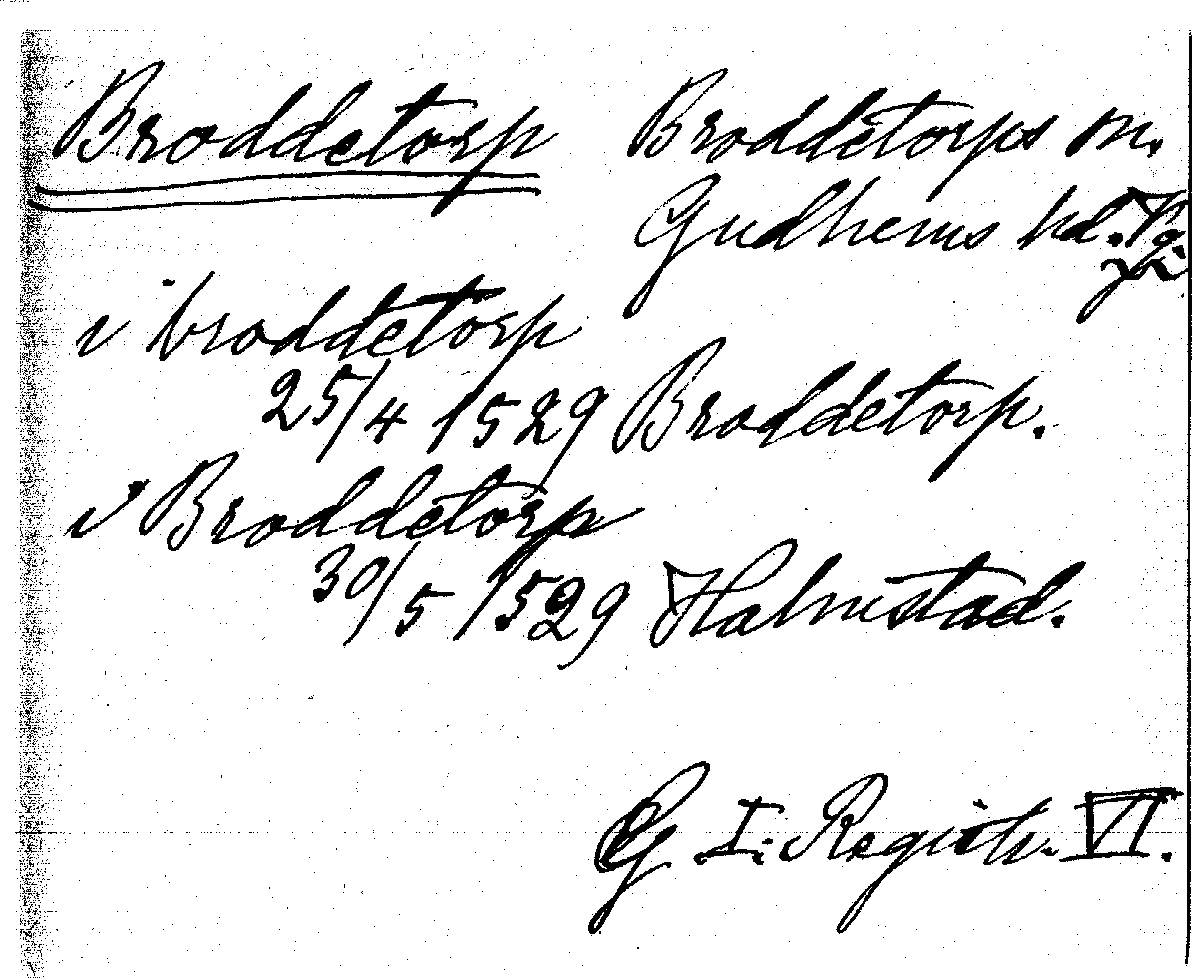 Broddetorp Broddetorps sn.
Gudhems hd. Vg.
i broddetorp
25/4 1529 Broddetorp.
i Broddetorp
30/5 1529 Halmstad.
G. I: Registr. VI.